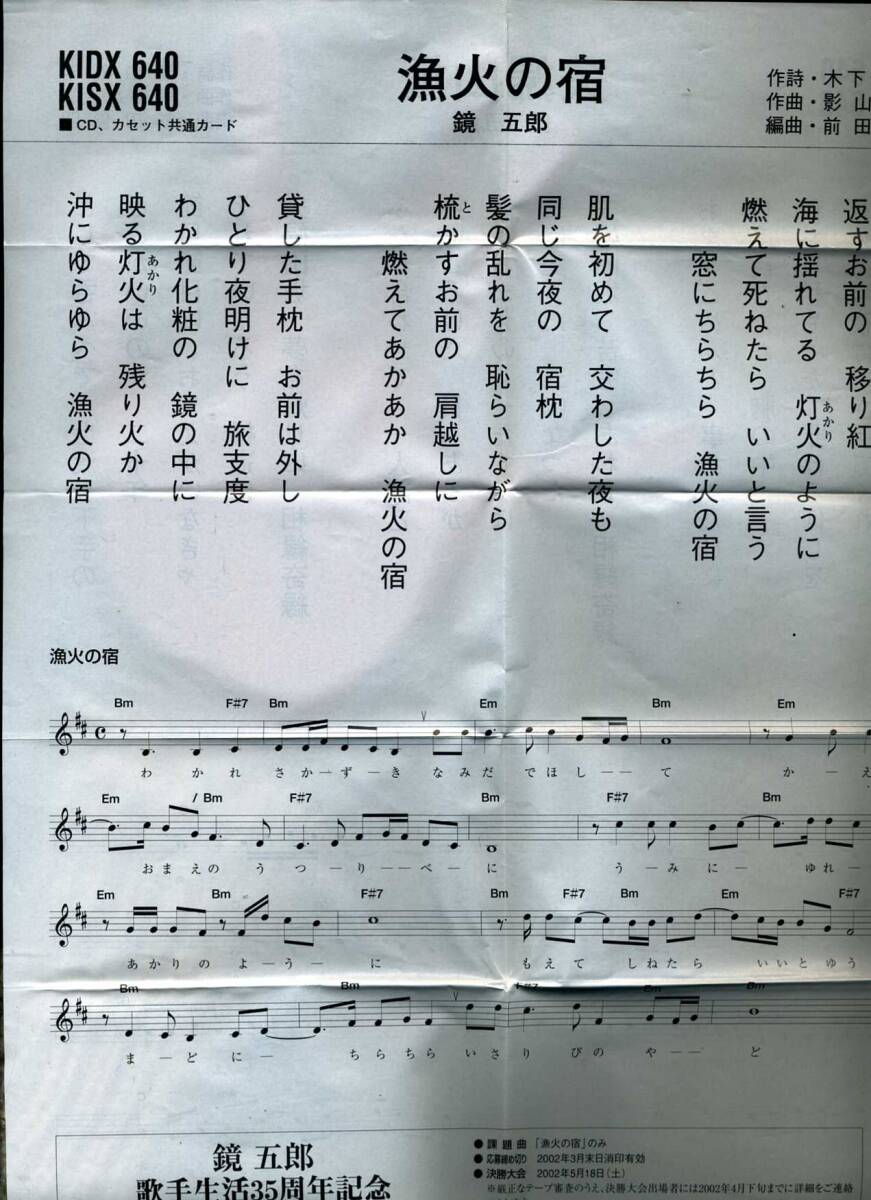 KIDX 640
KISX 640
■CD、カセット共通カード
漁火の宿
鏡 五郎
作詩・木下
作曲・影山
編曲・前田
返すお前の 移り紅
海に揺れてる 灯火のように
あかり
燃えて死ねたら いいと言う
窓にちらちら 漁火の宿
肌を初めて 交わした夜も
同じ今夜の 宿枕
髪の乱れを 恥らいながら
梳かすお前の 肩越しに
と
燃えてあかあか 漁火の宿
貸した手枕 お前は外し
ひとり夜明けに 旅支度
わかれ化粧の 鏡の中に
映る灯火は 残り火か
あかり
沖にゆらゆら 漁火の宿
漁火の宿
Bm F#7 Bm Em Bm Em
わ か れ さ か ー ず ー き な み だ で ほ し ー ー て か ー え
Em / Bm F#7 Bm F#7 Bm
お ま え の う つ ー り ー ー べ ー に う ー み に ー ゆ れ ー
Em Bm F#7 Bm F#7 Bm Em F#7
あ か り の よ ー う ー に も え て し ね た ら い い と ゆ う
Bm Bm F#7 Bm
ま ー ど に ー ち ら ち ら い さ り び の や ー ー ど
鏡 五郎
歌手生活35周年記念
●課題曲 「漁火の宿」のみ
●応募締め切り 2002年3月末日消印有効
●決勝大会 2002年5月18日(土)
※厳正なテープ審査のうえ、決勝大会出場者には2002年4月下旬までに詳細をご連絡